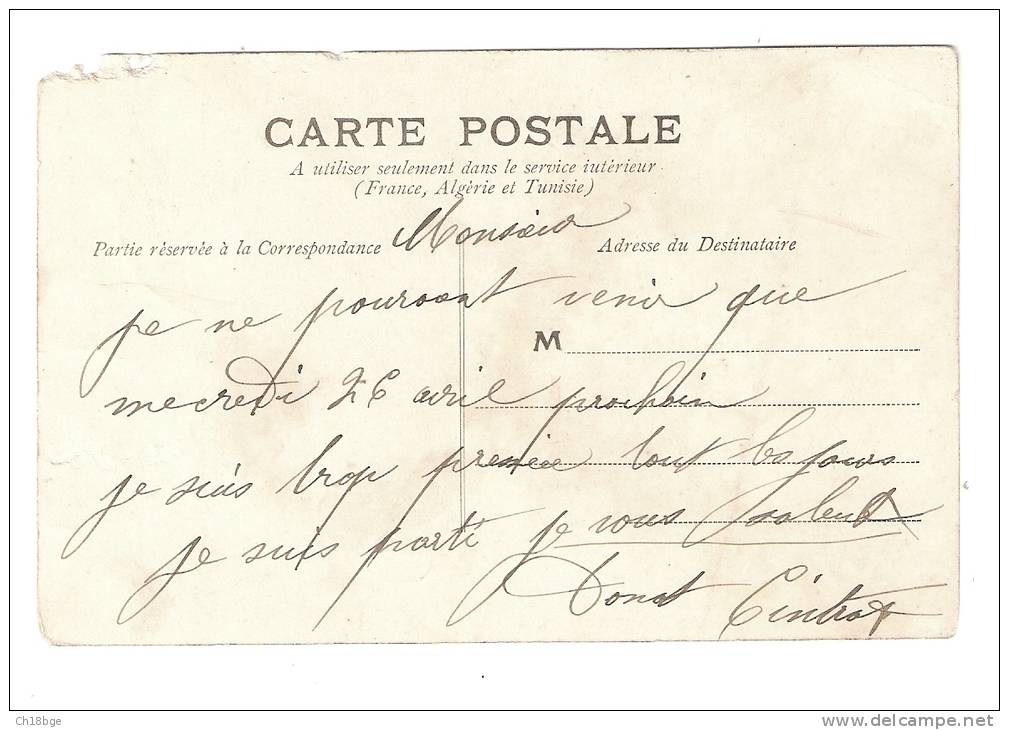 CARTE POSTALE
A utiliser seulement dans le service intérieur
(France, Algérie et Tunisie)
Partie réservée à la Correspondance
Adresse du Destinataire
M
Monsieur
je ne pouvant venir que
mecredi 26 avril prochain
je suis trop tout les jours
je suis parti je vous salut
Donat
Ch18bge
www.delcampe.net